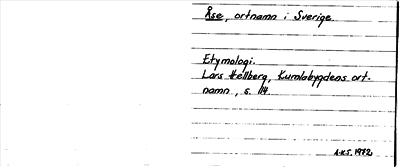 Åse, ortnamn i Sverige.
Etymologi.
Lars Hellberg, Kumlabygdens ort-
namn, s. 114.
A.K.S. 1972.